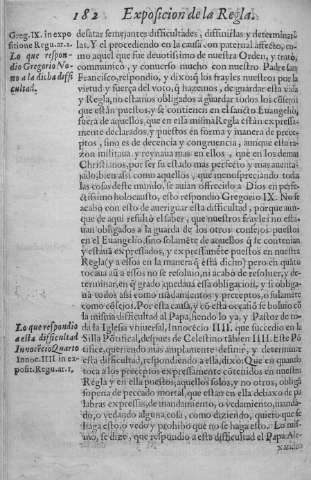 182 Exposicion de la Regla.
Greg. IX. in expo
sitione Regu. ar. 1.
Lo que respon-
dio Gregorio No-
no a la dicha diffi
cultad.
desatar semejantes difficultades, diffinirlas y determinar
las. Y el procediendo en la causa con paternal affecto, co-
mo aquel que fue deuotissimo de nuestra Orden, y trató,
communicó, y conuersó mucho con nuestro Padre san
Francisco, respondio, y dixo q̃ los frayles nuestros por la
virtud y fuerça del voto, q̃ hazemos, de guardar esta vida
y Regla, no estamos obligados a guardar todos los cõsejos
que estàn puestos, y se contienen en el sancto Euangelio,
fuera de aquellos, que en ella misma Regla estàn expressa-
mente declarados, y puestos en forma y manera de prece-
ptos, sino es de decencia y congruencia, aunque esta ra-
zon militaua y reynaua mas en ellos, que en los demas
Christianos, por ser su estado mas perfecto y mas auenta-
jado, bien assi como aquellos, que menospreciando todas
las cosas deste mundo, se auian offrecido a Dios en perfe-
ctissimo holocausto, esto respondio Gregorio IX. No se
acabó con esto de aueriguar esta difficultad, porque aun-
que de aqui resultó el saber, que nuestros frayles no esta-
uan obligados a la guarda de los otros consejos puestos
en el Euangelio, sino solamẽte de aquellos q̃ se contenian
y estauã expressados, y expressamẽte puestos en nuestra
Regla (y a essos en la manera q̃ està dicho) pero en quãto
tocaua aũ a essos no se resoluio, ni acabò de resoluer, y de-
terminar, en q̃ grado quedaua essa obligaciõ, y si obliga-
uã todos assi como mãdamientos y preceptos, o solamẽte
como cõsejos. Por esta causa, y cõ esta ocasiõ se boluio cõ
la misma difficultad al Papa, siendo lo ya, y Pastor de to-
da la Iglesia vniuersal, Innocẽcio IIII. que succedio en la
Silla Põtifical, despues de Celestino tãbien IIII. Este Põ-
tifice, queriendo mas amplamente definir, y determinar
esta difficultad, respondiendo a ella, dixo: Que en quanto
toca a los preceptos expressamente cõtenidos en nuestra
Regla y en ella puestos, aquellos solos, y no otros, obligã
so pena de peccado mortal, que estan en ella debaxo de pa
labras expressas, de mandamiento, o vedamiento, mandã-
do, o vedando alguna cosa, como diziendo, quiero que se
haga esto, o vedo y prohibo que no se haga esto. Lo mis-
mo, se dize, que respondio a esta difficultad el Papa Ale-
Lo que respondio
a esta difficultad
Innocẽcio Quarto
Innoc. IIII. in ex-
posit. Regu. ar. 1.